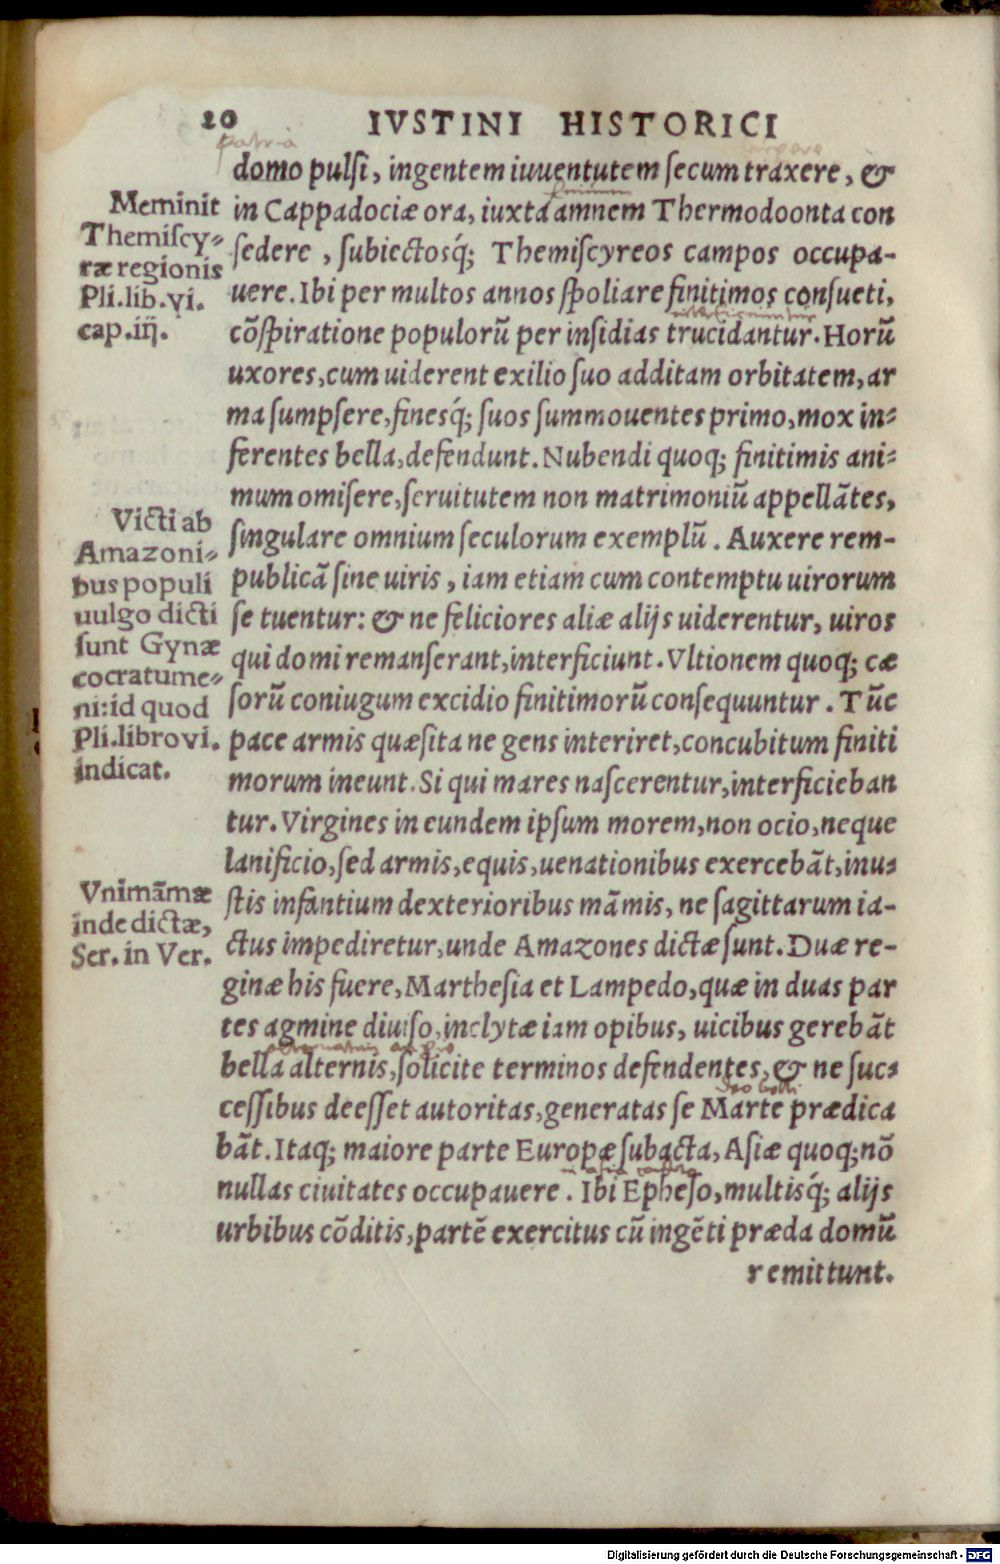 20 IVSTINI HISTORICI
patria
domo pulsi, ingentem iuuentutem secum traxere, &
in Cappadociæ ora, iuxta amnem Thermodoonta con
sedere, subiectosq́; Themiscyreos campos occupa-
uere. Ibi per multos annos spoliare finitimos consueti,
cõspiratione populorũ per insidias trucidantur. Horũ
uxores, cum uiderent exilio suo additam orbitatem, ar
ma sumpsere, finesq́; suos summouentes primo, mox in-
ferentes bella, defendunt. Nubendi quoq; finitimis ani-
mum omisere, seruitutem non matrimoniũ appellãtes,
singulare omnium seculorum exemplũ. Auxere rem-
publicã sine uiris, iam etiam cum contemptu uirorum
se tuentur: & ne feliciores aliæ alijs uiderentur, uiros
qui domi remanserant, interficiunt. Vltionem quoq; cæ
sorũ coniugum excidio finitimorũ consequuntur. Tũc
pace armis quæsita ne gens interiret, concubitum finiti
morum ineunt. Si qui mares nascerentur, interficieban
tur. Virgines in eundem ipsum morem, non ocio, neque
lanificio, sed armis, equis, uenationibus exercebãt, inu-
stis infantium dexterioribus mãmis, ne sagittarum ia-
ctus impediretur, unde Amazones dictæ sunt. Duæ re-
ginæ his fuere, Marthesia et Lampedo, quæ in duas par
tes agmine diuiso, inclytæ iam opibus, uicibus gerebãt
bella alternis, solicite terminos defendentes, & ne suc-
cessibus deesset autoritas, generatas se Marte prædica
bãt. Itaq; maiore parte Europæ subacta, Asiæ quoq; nõ
nullas ciuitates occupauere. Ibi Epheso, multisq́; alijs
urbibus cõditis, partẽ exercitus cũ ingẽti præda domũ
remittunt.
Meminit
Themiscy-
ræ regionis
Pli. lib. vi.
cap. iij.
Victi ab
Amazoni-
bus populi
uulgo dicti
sunt Gynæ
cocratume-
ni: id quod
Pli. libro vi.
indicat.
Vnimãmæ
inde dictæ,
Ser. in Ver.
Digitalisierung gefördert durch die Deutsche Forschungsgemeinschaft - DFG